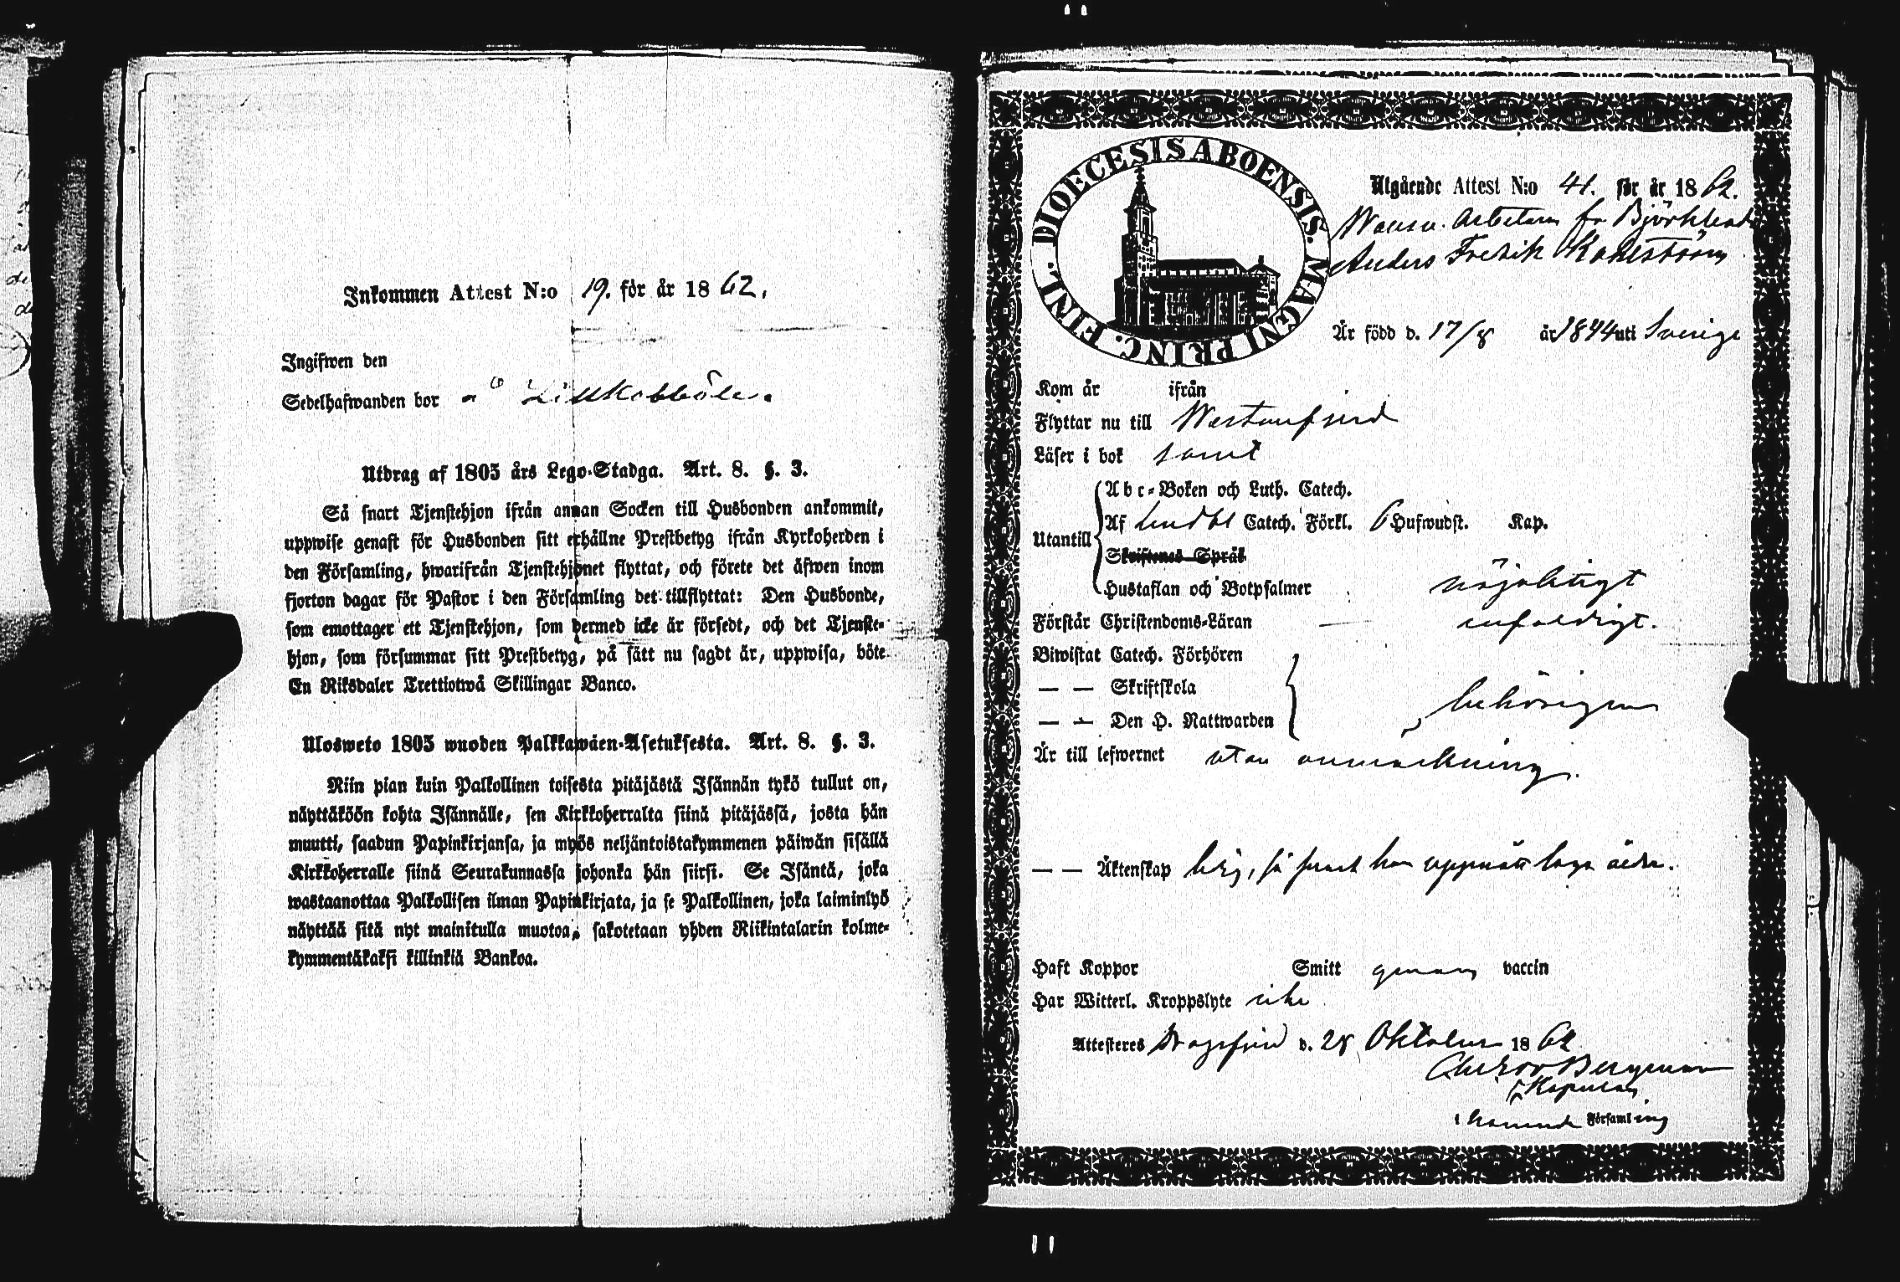 Inkommen Attest N:o 19. för år 1862.
Ingifwen den
Sedelhafwanden bor å Lillkobböle.
Utdrag af 1805 års Lego-Stadga. Art. 8. §. 3.
Så snart Tjenstehjon ifrån annan Socken till Husbonden ankommit,
uppwise genast för Husbonden sitt erhållne Prestbetyg ifrån Kyrkoherden i
den Församling, hwarifrån Tjenstehjonet flyttat, och förete det äfwen inom
fjorton dagar för Pastor i den Församling det tillflyttat: Den Husbonde,
som emottager ett Tjenstehjon, som dermed icke är försedt, och det Tjenste-
hjon, som försummar sitt Prestbetyg, på sätt nu sagdt är, uppwisa, böte
En Riksdaler Trettiotwå Skillingar Banco.
Ulosweto 1805 wuoden Palkkawäen-Asetuksesta. Art. 8. §. 3.
Niin pian kuin Palkollinen toisesta pitäjästä Isännän tykö tullut on,
näyttäköön kohta Isännälle, sen Kirkkoherralta siinä pitäjässä, josta hän
muutti, saadun Papinkirjansa, ja myös neljäntoistakymmenen päiwän sisällä
Kirkkoherralle siinä Seurakunnassa johonka hän siirsi. Se Isäntä, joka
wastaanottaa Palkollisen ilman Papinkirjata, ja se Palkollinen, joka laiminlyö
näyttää sitä nyt mainitulla muotoa, sakotetaan yhden Riikintalarin kolme-
kymmentäkaksi killinkiä Bankoa.
DIOECESIS ABOENSIS. MAGNI PRINC. FINL.
Utgående Attest N:o 41. för år 1862.
Arbetaren fr Björkboda
Anders Fredrik Kahlström
Är född d. 17/8 år 1844 uti Sverige
Kom år ifrån
Flyttar nu till Westanfjerd
Läser i bok samt
Utantill
Abc-Boken och Luth. Catech.
Af Lindbl Catech. Förkl. 6 Hufwudst. Kap.
Skriftenes Språk
Hustaflan och Botpsalmer nöjaktigt
Förstår Christendoms-Läran enfaldigt.
Biwistat Catech. Förhören
— — Skriftskola
— — Den H. Nattwarden behörigen
Är till lefwernet utan anmärkning.
— — Äktenskap ledig, så snart han uppnått laga ålder.
Haft Koppor Smitt genom vaccin
Har Witterl. Kroppslyte icke
Attesteres Dragsfjerd d. 28 Oktober 1862
Bergman
Kapellan
i härwarande Församling